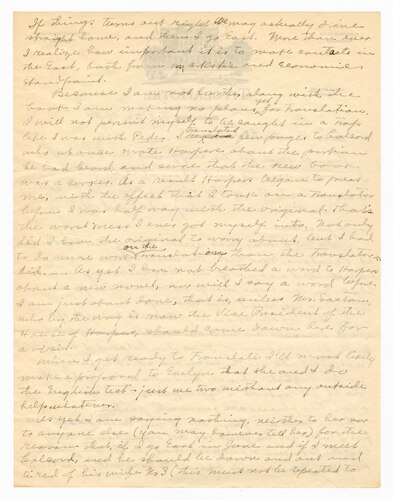 If things turn out right we may actually drive
straight home, and then I go East. More than ever
I realize how important it is to make contacts in
the East, both from artistic and economic
standpoint.
Because I am not further along with the
book I am making no plans yet for translation.
I will not permit myself to be caught in a trap
like I was with Peder. I translated a few pages to
who at once wrote Harpers about the portion
he had heard and swore that the new book
was a corker. As a result Harpers began to press
me, with the effect that I took on a translator
before I was half way with the original. That's
the worst mess I ever got myself into. Not only
did I have the original to worry about, but I had
to do more work on the translation than the translator
did. — As yet I have not breathed a word to Harpers
about a new novel, nor will I say a word before
I am just about done, that is, unless Mr. Saxton,
who by the way is now the Vice President of the
House of Harper, should come down here for
a visit.
When I get ready to translate I'll most likely
make a proposal to Evelyn that she and I do
the English text - just we two without any outside
help whatever.
As yet I am saying nothing, neither to her nor
to anyone else (you may however tell her) for the
reason that, if I go East in June and if I meet
and he should be down and out and
tired of his wife No 3 (this must not be repeated to